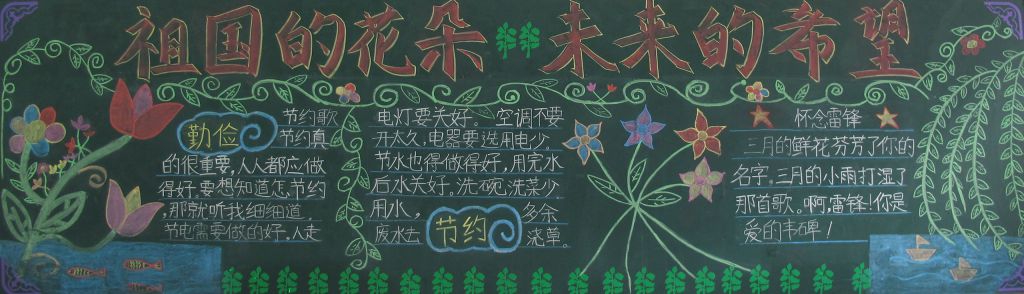 祖国的花朵 未来的希望
勤俭
节约歌
节约真
的很重要,人人都应做
得好,要想知道怎节约
,那就听我细细道.
节电需要做的好,人走
电灯要关好。空调不要
开太久,电器要选用电少。
节水也得做得好,用完水
后水关好,洗碗,洗菜少
用水,多余
废水去浇草。
节约
怀念雷锋
三月的鲜花芬芳了你的
名字,三月的小雨打湿了
那首歌。啊,雷锋!你是
爱的丰碑!